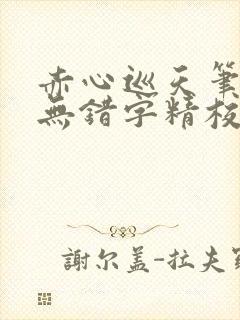 赤心巡天筆
無錯字精校
謝尔盖-拉夫